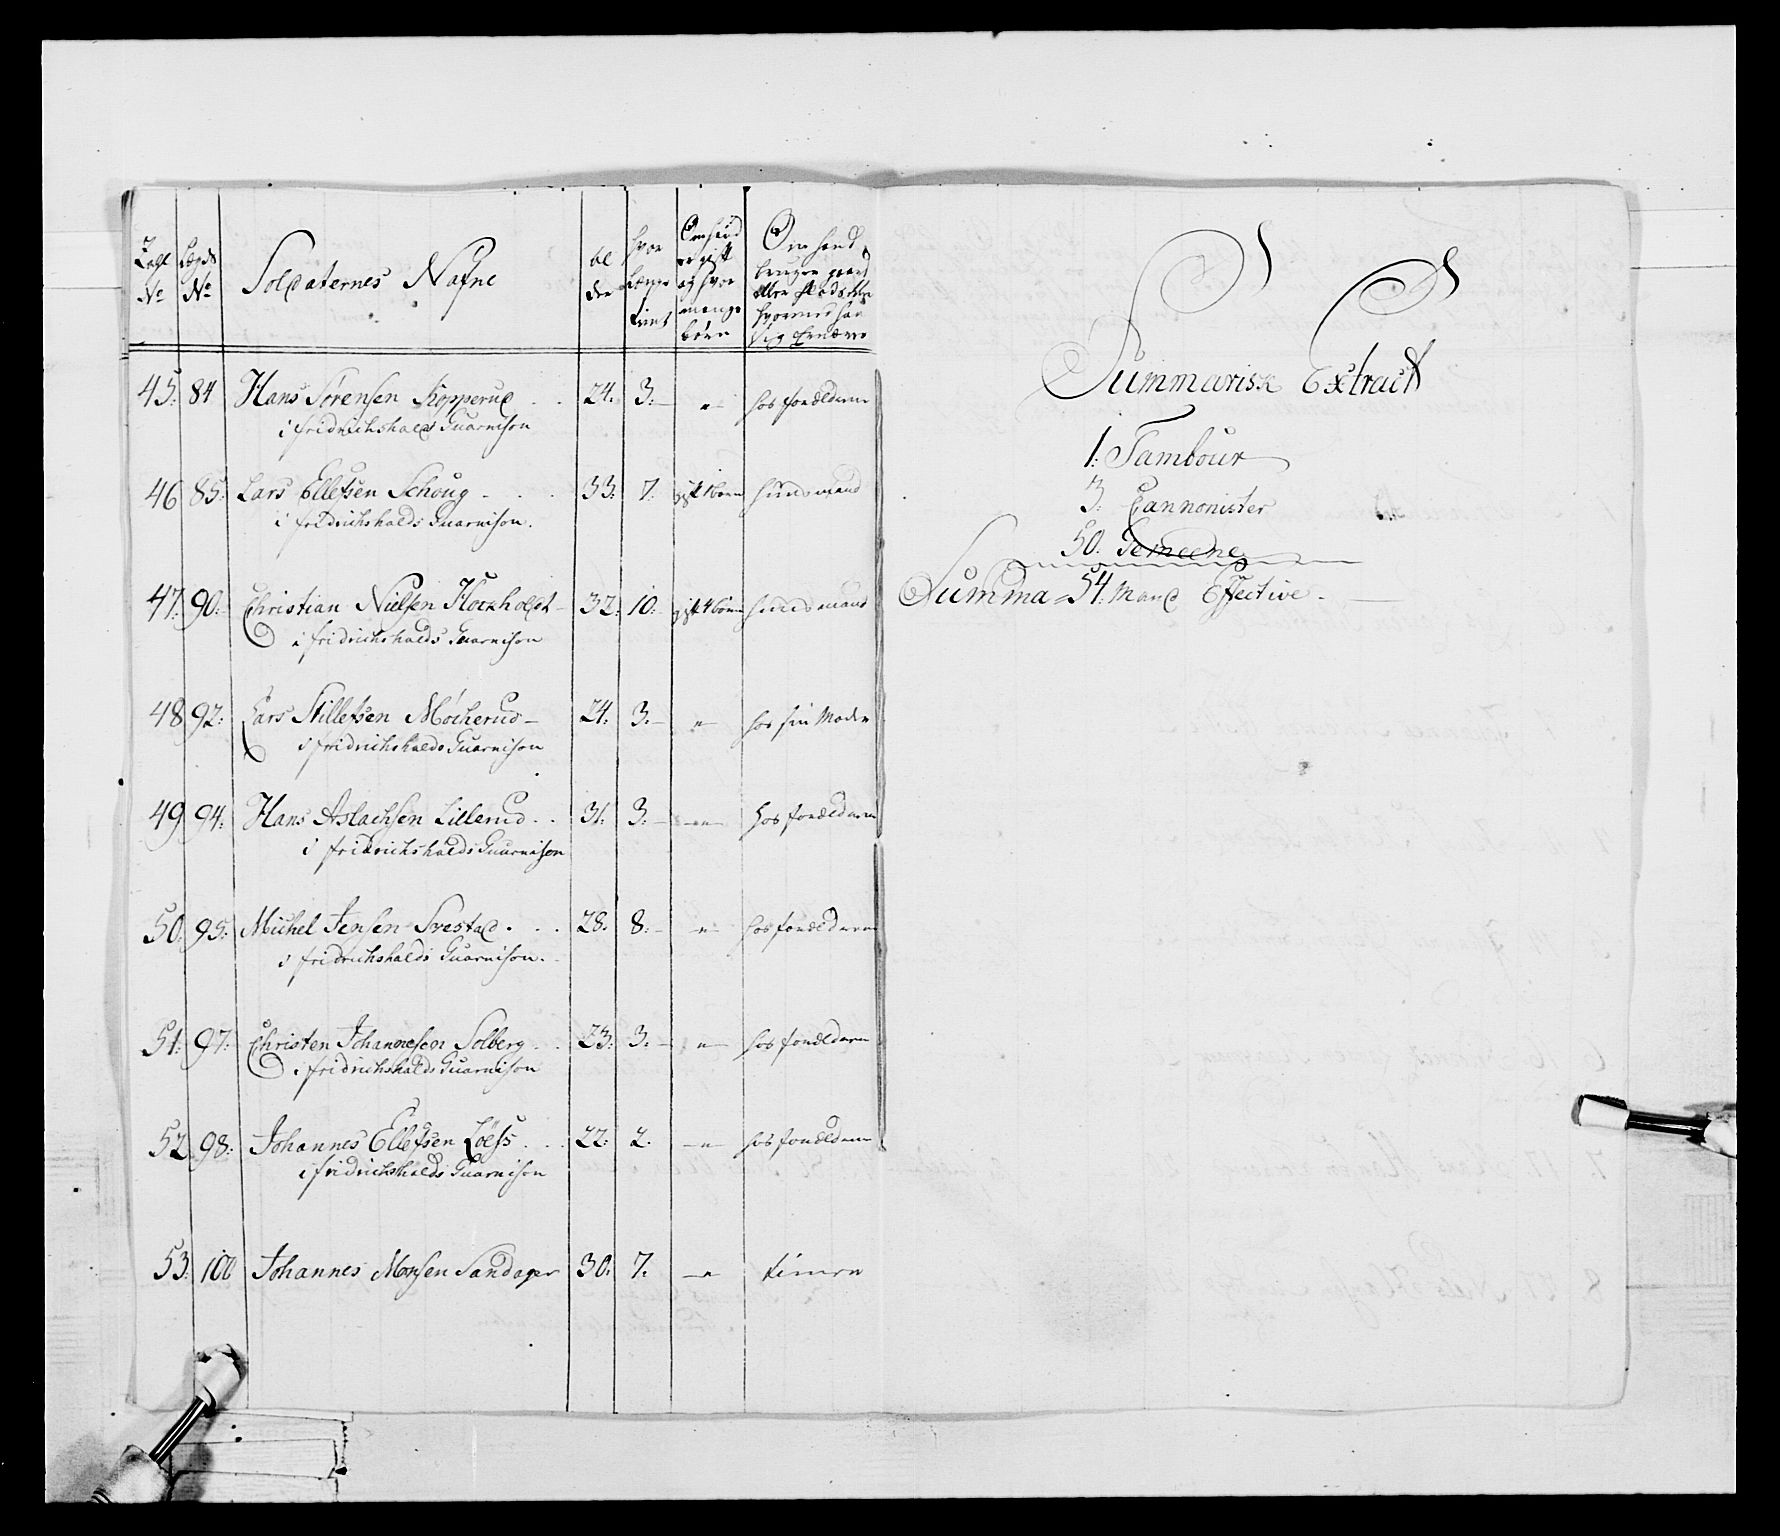 Tall No
Lægds No
Soldaternes Nafne
al der
hvor længe tient
Om hand er gift og hvor mange børn
Om hand
hvormed han sig Ernærer
45. 84 Hans Sørensen Kopperud 24. 3. " hos forældrene
i fridrichshalds Guarnison
46 85. Lars Ellefsen Schoug 33. 7. gift 1 børn huusmand
i fridrichshalds Guarnison.
47. 90. Christian Nielsen Holtet 32. 10. gift 4 børn huusmand
i fridrichshalds Guarnison
48 92. Lars Nilletsen Møcherud 24. 3. " hos sin Moder
i fridrichshalds Guarnison
49 94. Hans Aslachsen Lillerud 31. 3. " hos forældrene
i fridrichshalds Guarnison
50. 95. Michel Jensen Svestad 28. 8. " hos forældrene
i fridrichshalds Guarnison.
51. 97. Christen Johannesen Solberg 23. 3. " hos forældrene
i fridrichshalds Guarnison
52 98. Johannes Ellefsen Løess 22. 2. " hos forældrene
i fridrichshalds Guarnison
53. 100 Johannes Monsen Sandager 30. 7. " tiener
Summarisk Extract
1. Tambour
3. Cannonister
50. Gemeene
Summa = 54. Mand Effective.